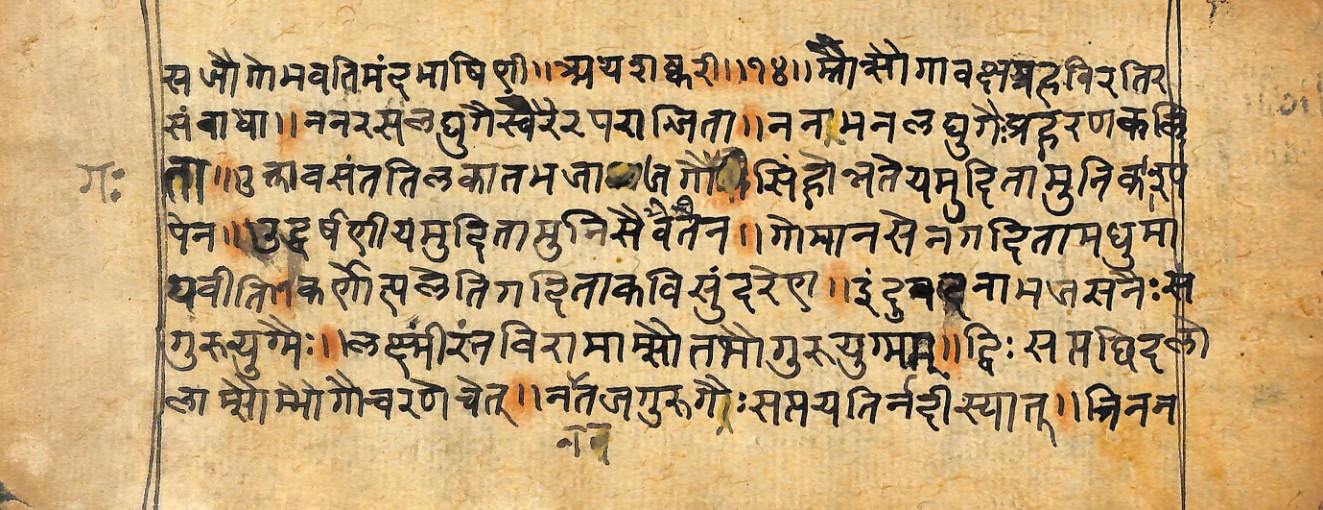 स जौ गो भवति मंदभाषिणी ॥ अथ शक्वरी ॥१४॥ म्तौ न्सौ गावक्षग्रहविरतिर
संबाधा ॥ ननरसलघुगैः स्वरैरपराजिता ॥ ननभनलघुगैः प्रहरणकलि
गः
ता ॥ उक्ता वसंततिलका तभजा जगौ गः सिंहोन्नतेयमुदिता मुनिकाश्यपेन
पेन ॥ उद्धर्षिणीयमुदिता मुनिसैतवेन ॥ गोमानसेन गदिता मधुमा
धवीति कर्णोत्पलेति गदिता कविसुंदरेण ॥ इंदुवदना भजसनैः स
गुरुयुग्मैः ॥ लक्ष्मीरंतविरामा म्सौ तभौ गुरुयुग्मम् ॥ द्विः सप्तछिदलो
ला म्सौ म्भौ गौ चरणे चेत् ॥ नतजगुरुगैः सप्तयतिर्नदी स्यात् ॥ त्रिनन
नत